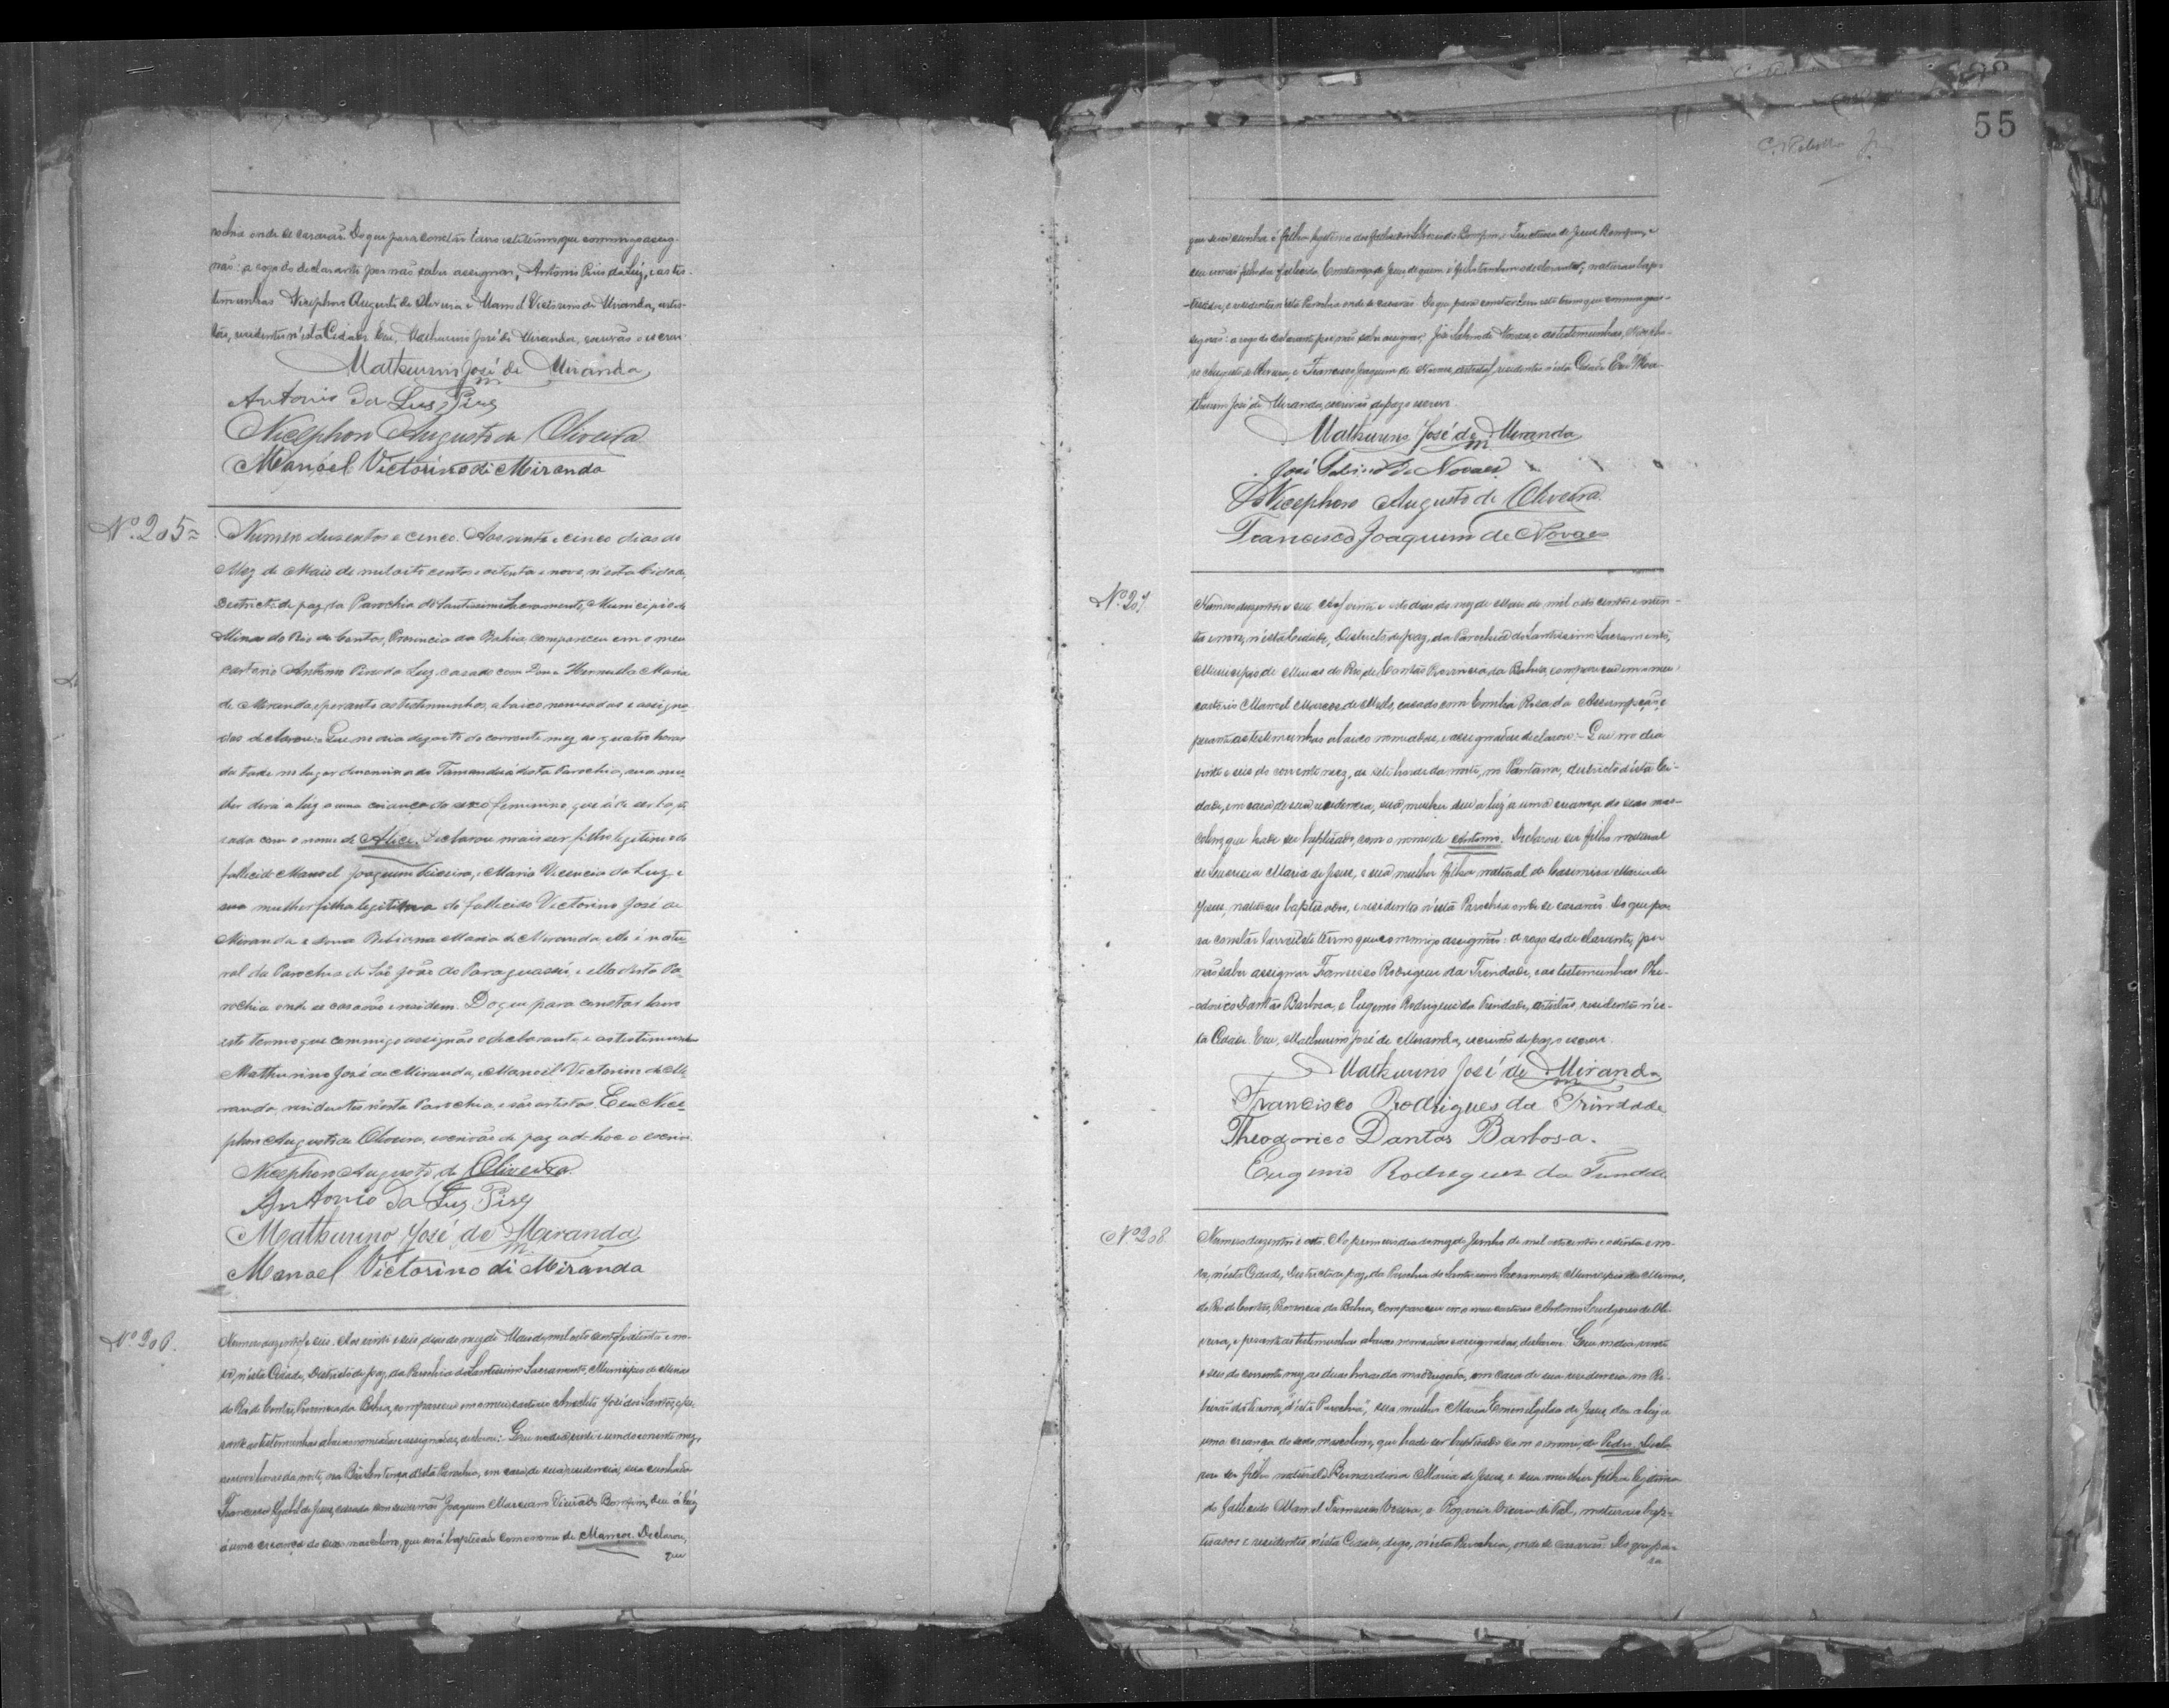 rochia onde se casarão. Do que para constar lavro este termo que commigo assig-
não: a rogo do declarante por não saber assignar, Antonio Pires da Luz, e as tes-
temunhas Nicephoro Augusto de Oliveira e Manoel Victorino de Miranda, artis-
tas, residentes n'esta Cidade. Eu, Mathurino José de Miranda, escrivão o escrevi.
Mathurino José de Miranda
Antonio da Luz Pires
Nicephoro Augusto de Oliveira
Manoel Victorino di Miranda
Nº 205
Numero dusentos e cinco. Aos vinte e cinco dias do
Mez de Maio de mil oito centos e oitenta e nove, n'esta Cidade,
Districto de paz, da Parochia do Santissimo Sacramento, Municipio de
Minas do Rio de Contas, Provincia da Bahia, compareceu em o meu
cartorio Antonio Pires da Luz, casado com Dona Maria
de Miranda, e perante as testimunhas, abaixo nomeadas e assigna-
das declarou: Que no dia do corrente mez, as quatro horas
da tarde no lugar denominado Tamanduá desta Parochia, sua mu-
lher deu a luz a uma criança do sexo feminino, que á de ser bap-
sada com o nome de Alice. Declarou mais ser filho legitimo do
fallecido Manoel Joaquim Teixeira, e Maria Vicencia da Luz, e
sua mulher filha legitima do fallecido Victorino José de
Miranda e dona Bibiana Maria de Miranda, elle é natu-
ral da Parochia de São João do Paraguassú, e ella desta Pa-
rochia onde se casarão e residem. Do que para constar lavro
este termo que commigo assignão o declarante, e as testimunhas
Mathurino José de Miranda, e Manoel Victorino de Mi-
randa, residentes n'esta Parochia, e são artistas. E eu Nice-
phoro Augusto de Oliveira, escrivão de paz ad-hoc o escrevi.
Nicephoro Augusto de Oliveira
Antonio da Luz Pires
Mathurino José de Miranda
Manoel Victorino di Miranda
Nº 206.
Numero duzentos e seis. Aos vinte e seis dias do mez de Maio de mil oito centos e oitenta e no-
ve, n'esta Cidade, Districto de paz, da Parochia do Santissimo Sacramento, Municipio de Minas
do Rio de Contas, Provincia da Bahia, compareceu em o meu cartorio Anacleto José dos Santos, e pe-
rante as testemunhas abaixo nomeadas e assignadas, declarou: Que no dia vinte e um do corrente mez,
horas da noite, na Bôa Sentença d'esta Parochia, em casa de sua residencia, sua cunhada
Francisca de Jesus, casada com seu irmão Joaquim Marciano Vieira do Bomfim, deu á luz
á uma criança do sexo masculino, que será baptisado com o nome de Marcos. Declarou,
que
55
que sua cunhada é filha legitima dos fallecidos do Bomfim, e de Jesus Bomfim, e
seu irmão filho da fallecida Constança de Jesus de quem é filho tambem o declarante, naturaes bap-
tisados, e residentes n'esta Parochia onde se casarão. Do que para constar lavro este termo que commigo as-
signão: a rogo do declarante por não saber assignar, José Sabino de Novaes, e as testemunhas, Nicepho-
ro Augusto de Oliveira, e Francisco Joaquim de Novaes, artistas, residentes n'esta Cidade. Eu Ma-
thurino José de Miranda, escrivão de paz o escrevi.
Mathurino José de Miranda
José Sabino de Novaes
Nicephoro Augusto de Oliveira
Francisco Joaquim de Novaes
Nº 207.
Numero duzentos e sete. Aos vinte e oito dias do mez de Maio de mil oito centos e oiten-
ta e nove, n'esta Cidade, Districto de paz, da Parochia do Santissimo Sacramento,
Municipio de Minas do Rio de Contas, Provincia da Bahia, compareceu em o meu
cartorio Manoel Marcos de Mello, casado com Emilia Rosa da Assumpção, e
perante as testemunhas abaixo nomeadas, e assignadas declarou:- Que no dia
vinte e seis do corrente mez, as sete horas da noite, no Pantano, districto d'esta Ci-
dade, em casa de sua residencia, sua mulher deu a luz a uma criança do sexo mas-
culino, que hade ser baptisado, com o nome de Antonio. Declarou ser filho natural
de Lucrecia Maria de Jesus, e sua mulher filha natural de Casemira Maria de
Jesus, naturaes baptisados, e residentes n'esta Parochia onde se casarão. Do que pa-
ra constar lavro este termo que commigo assignão: a rogo do declarante, por
não saber assignar Francisco Rodrigues da Trindade, e as testemunhas The-
odorico Dantas Barbosa, e Eugenio Rodrigues da Trindade, artistas, residentes n'es-
ta Cidade. Eu, Mathurino José de Miranda, escrivão de paz o escrevi.
Mathurino José de Miranda
Francisco Rodrigues da Trindade
Theodorico Dantas Barbosa.
Eugenio Rodrigues da Trindade
Nº 208
Numero duzentos e oito. Ao primeiro dia do mez de Junho de mil oito centos e oitenta e no-
ve, n'esta Cidade, Districto de paz, da Parochia do Santissimo Sacramento, Municipio de Minas,
do Rio de Contas, Provincia da Bahia, compareceu em o meu cartorio Antonio de Oli-
veira, e perante as testemunhas abaixo nomeadas e assignadas, declarou: Que no dia vinte
e seis do corrente mez, as duas horas da madrugada, em casa de sua residencia no Ri-
beirão d'esta Parochia, sua mulher Maria Ermenelgilda de Jesus, deu a luz a
uma criança do sexo masculino, que hade ser baptisado com o nome de Pedro. Decla-
rou ser filho natural de Bernardina Maria de Jesus, e sua mulher filha legitima
do fallecido Manoel Francisco Vieira, e Rozaria Vieira do Val, naturaes bap-
tisados e residentes n'esta Cidade, digo, n'esta Parochia, onde se casarão. Do que pa-
ra